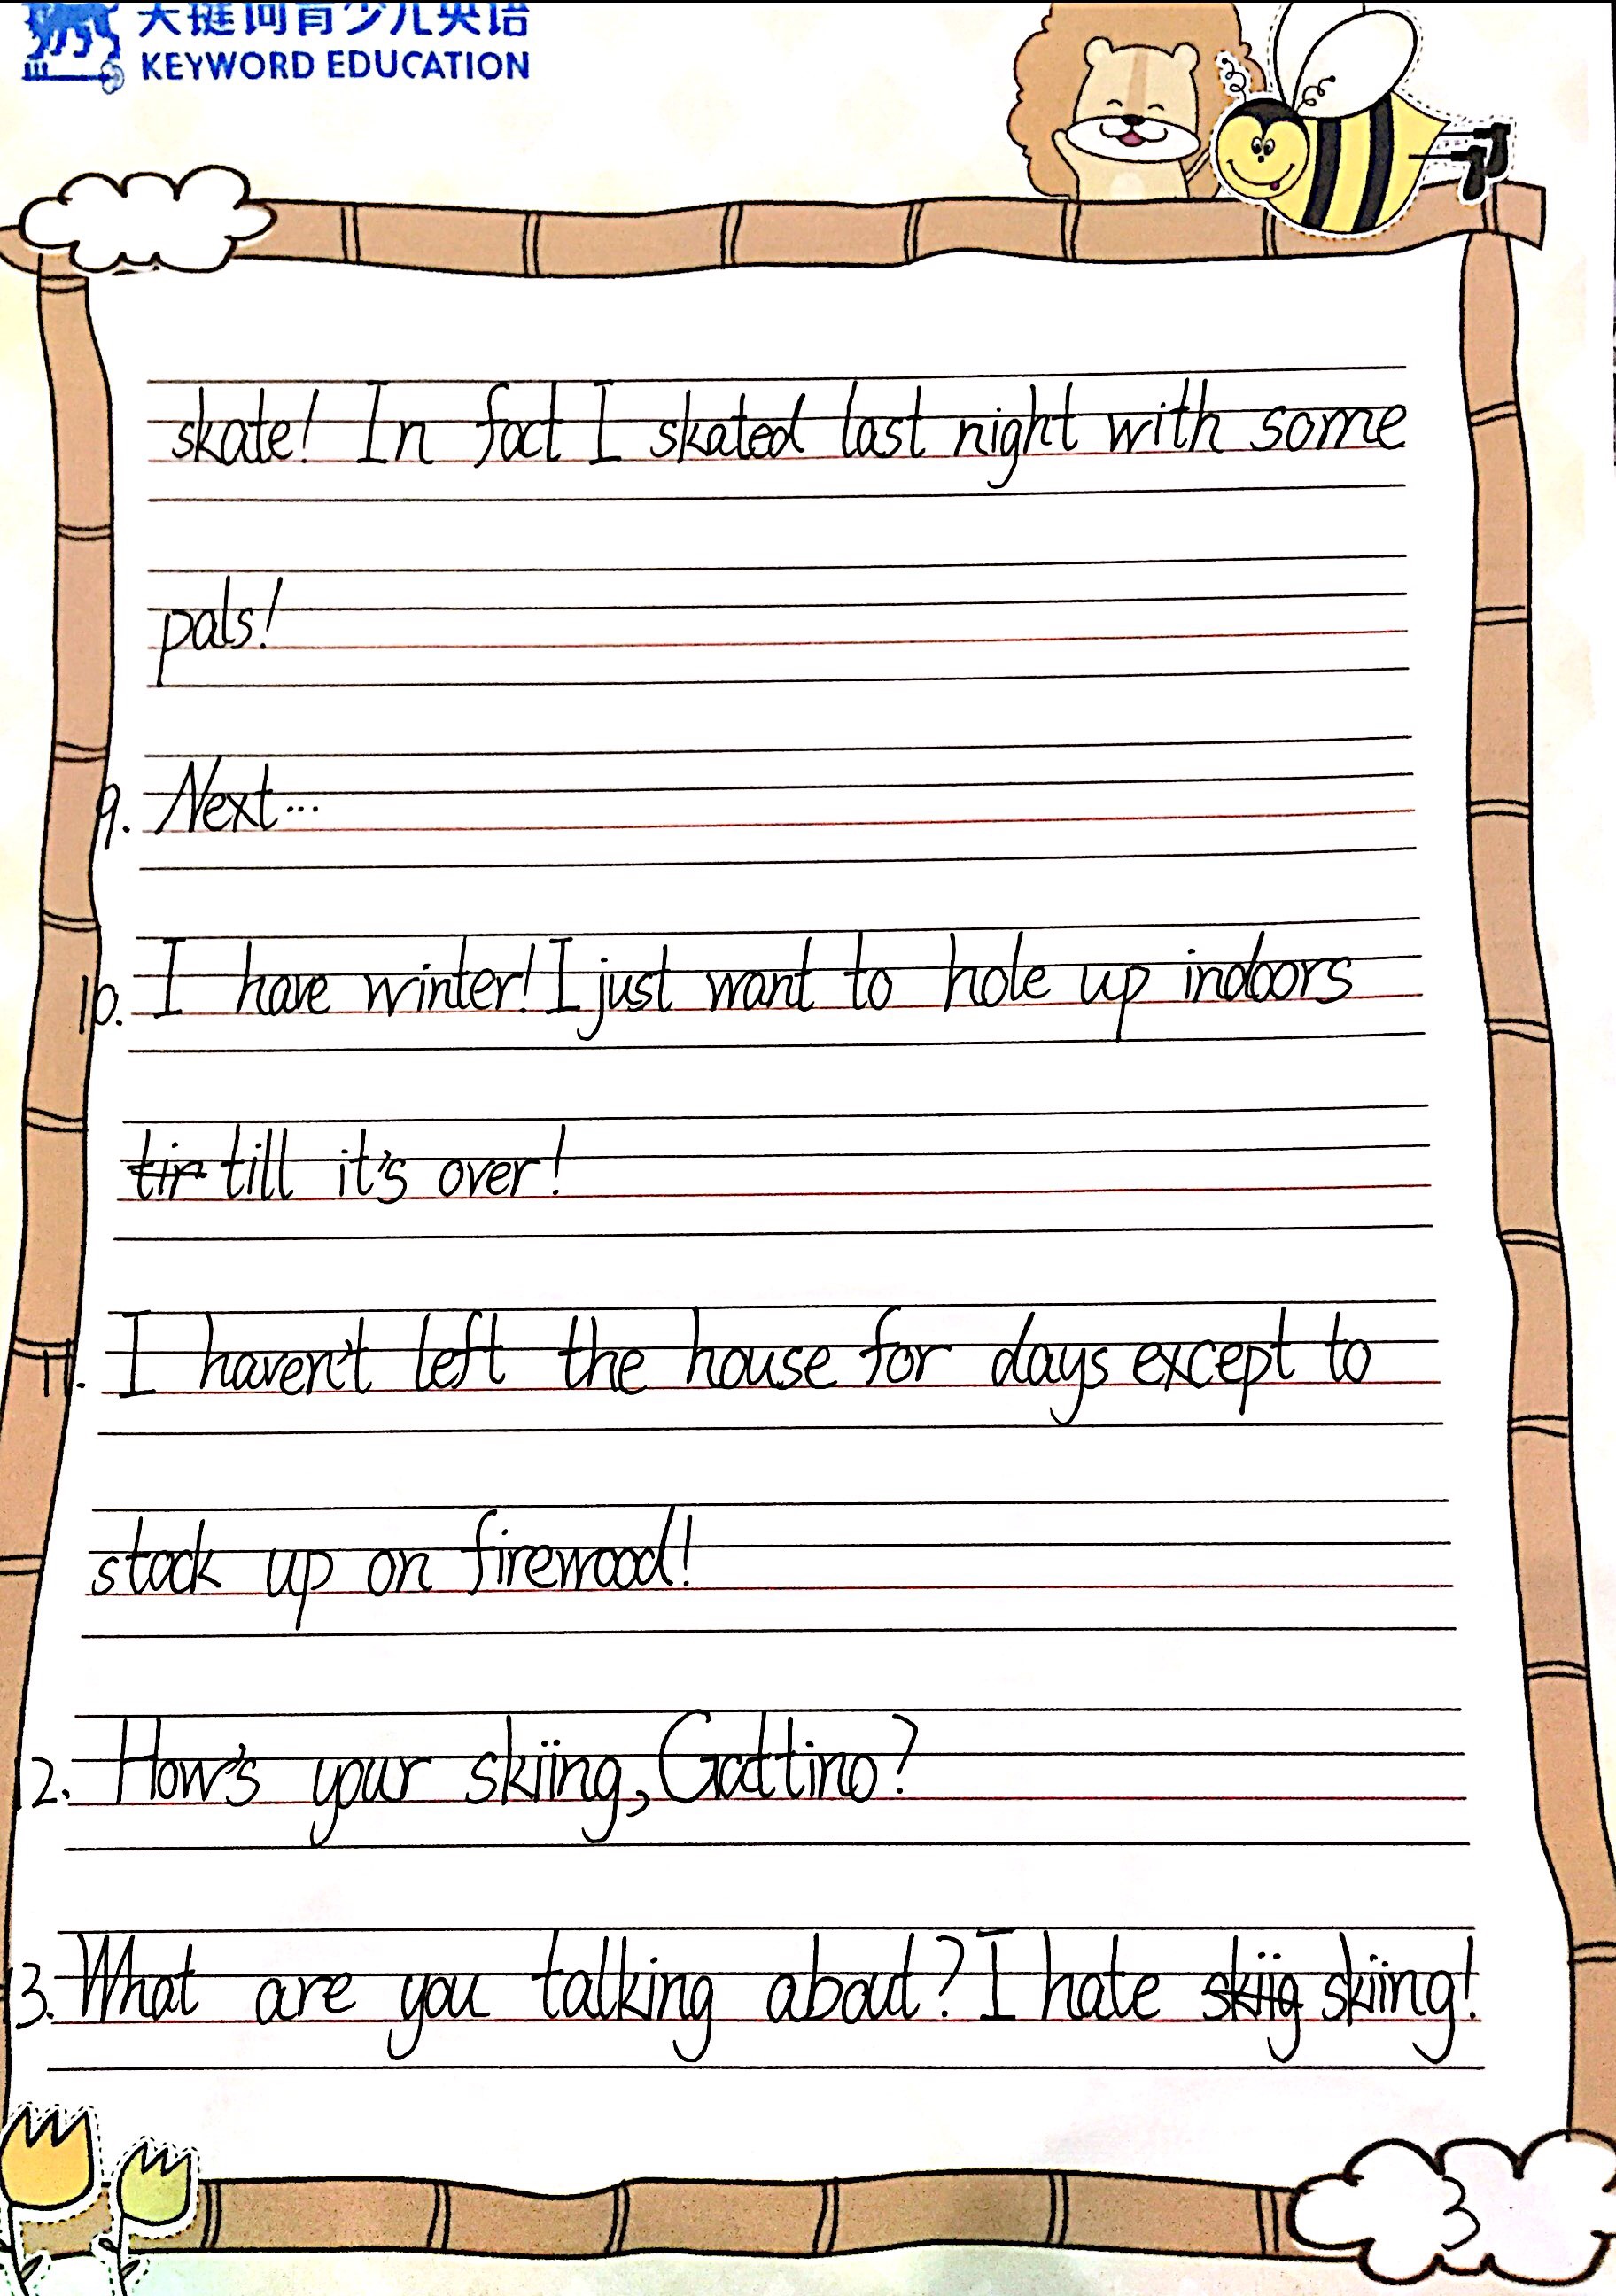 关键词青少儿英语
KEYWORD EDUCATION
skate! In fact I skated last night with some
pals!
9. Next...
10. I have winter! I just want to hole up indoors
tir till it's over!
11. I haven't left the house for days except to
stock up on firewood!
12. How's your skiing, Gattino?
13. What are you talking about? I hate skiig skiing!
3